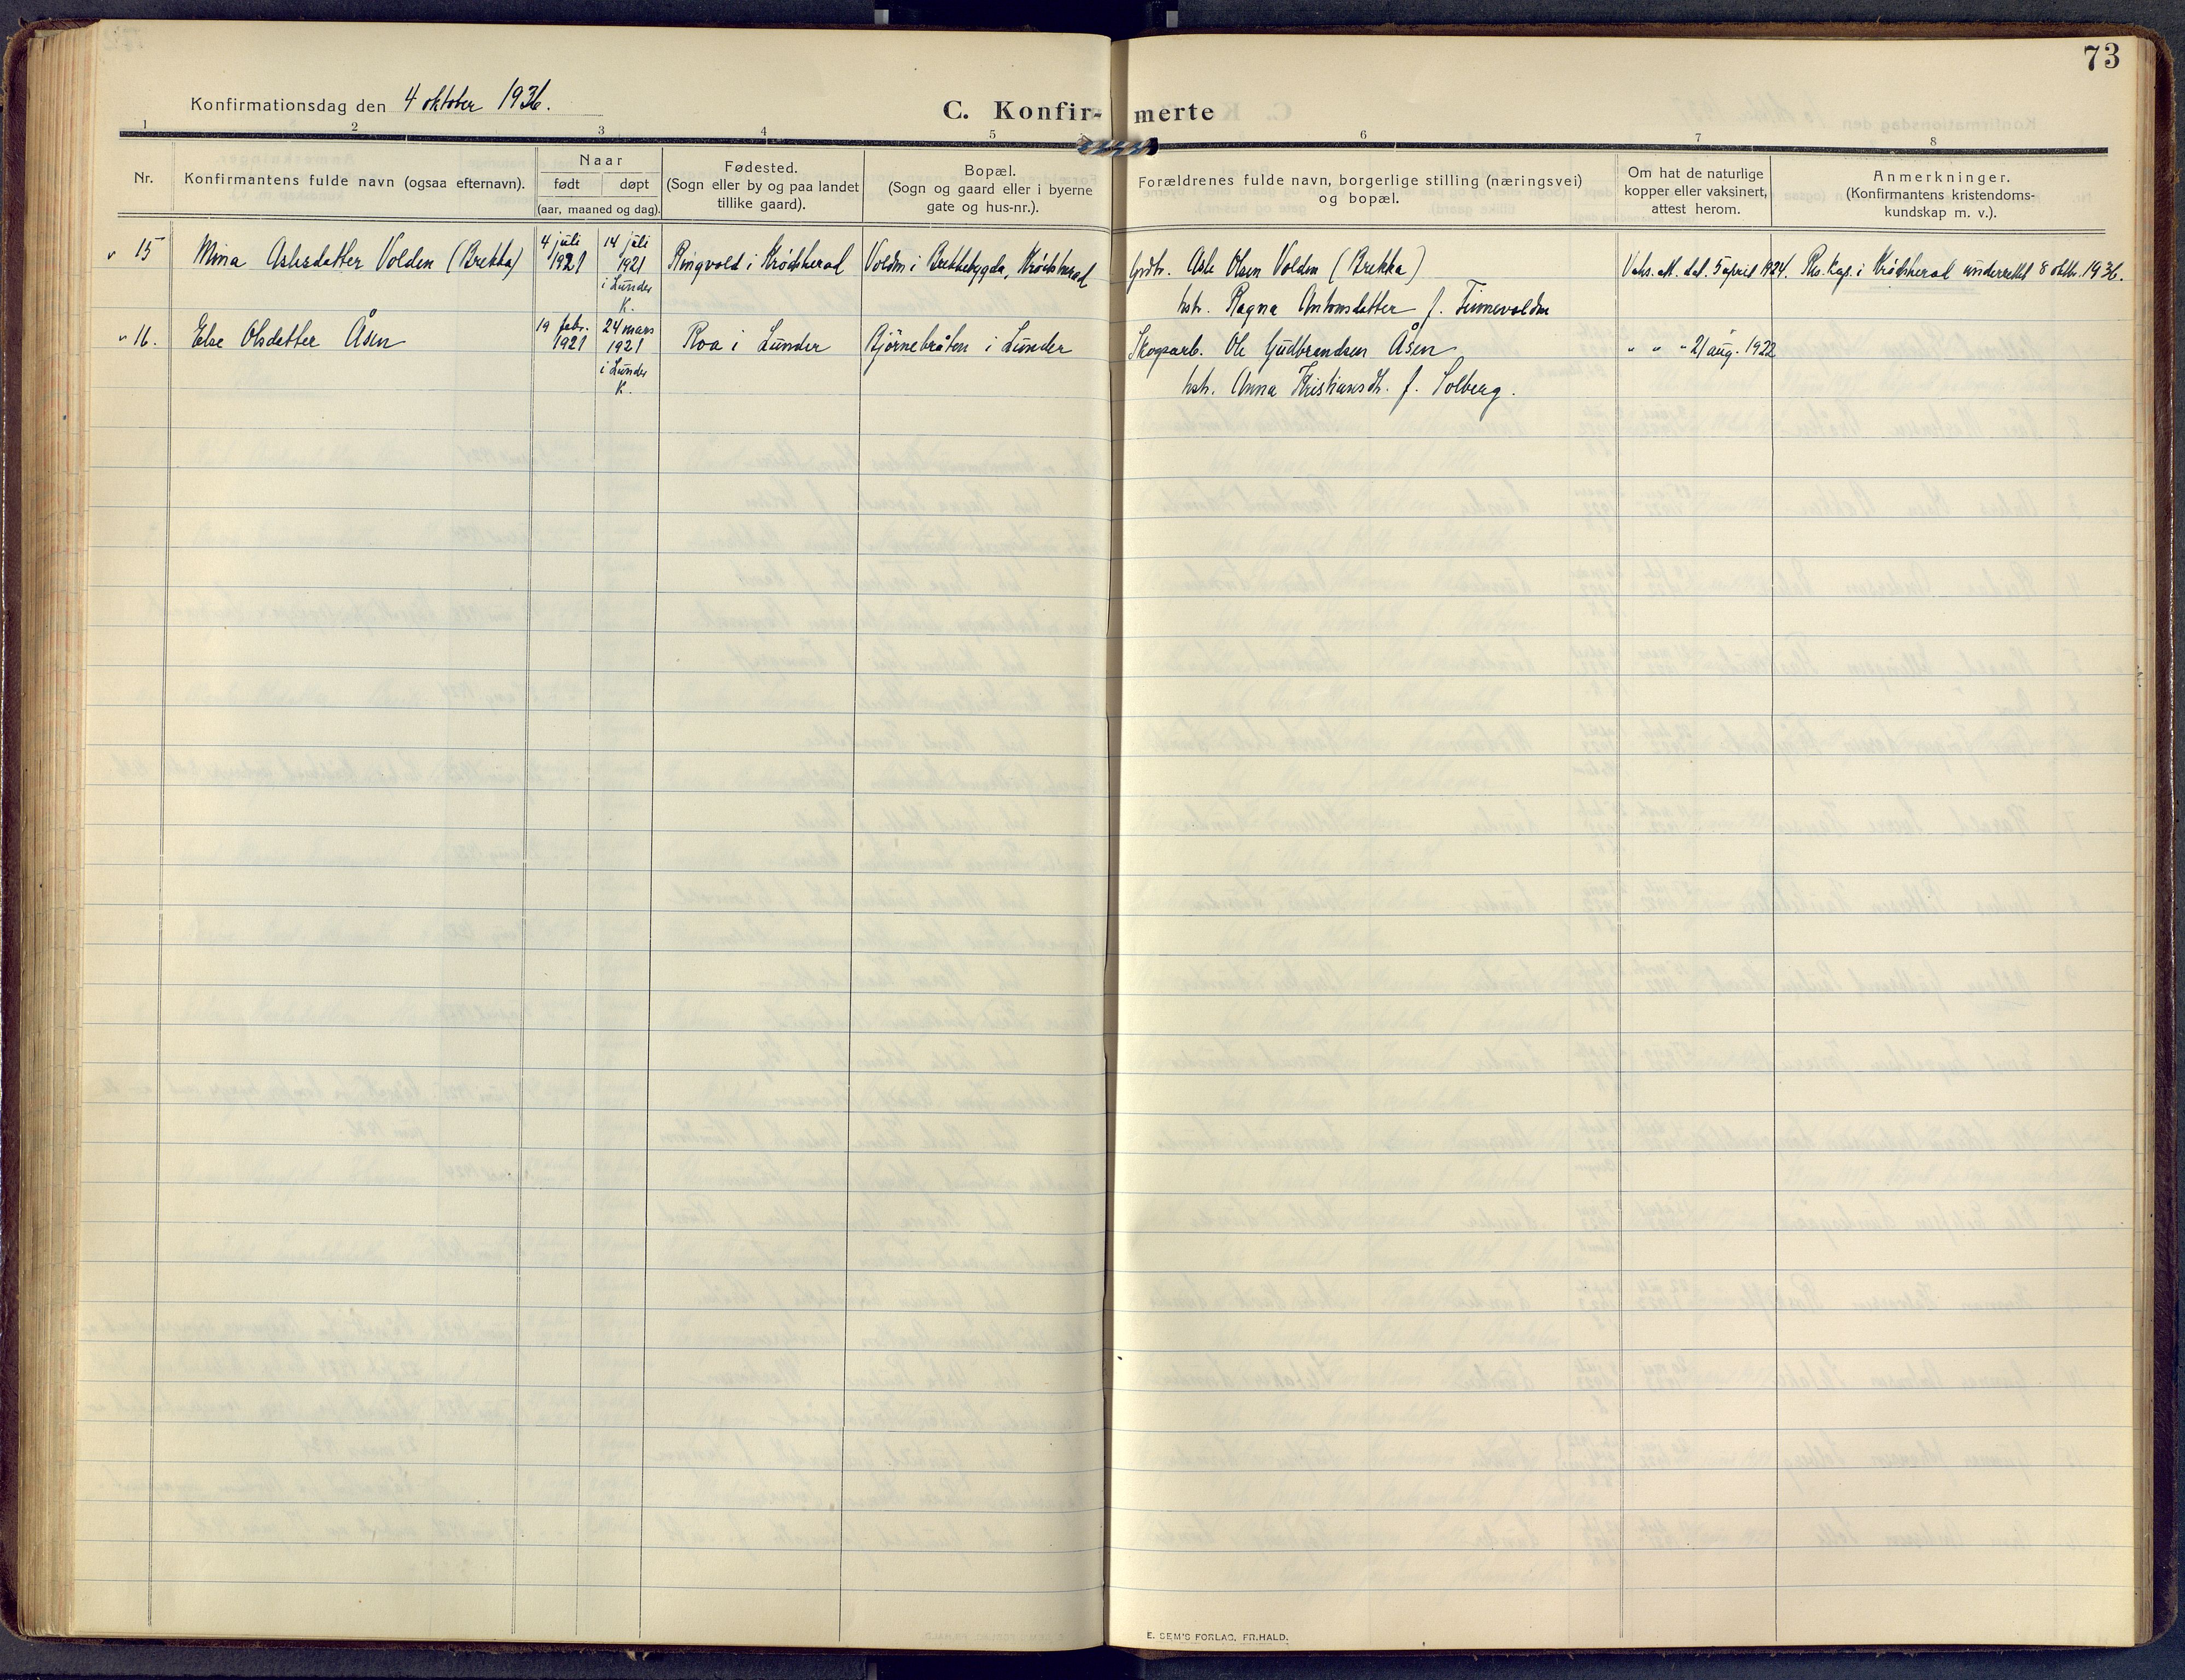 73
Konfirmationsdag den 4 oktober 1936.
C. Konfir- merte
1 2 3 4 5 6 7 8
Nr.
Konfirmantens fulde navn (ogsaa efternavn).
Naar
født døpt
(aar, maaned og dag).
Fødested.
(Sogn eller by og paa landet
tillike gaard).
Bopæl.
(Sogn og gaard eller i byerne
gate og hus-nr.).
Forældrenes fulde navn, borgerlige stilling (næringsvei)
og bopæl.
Om hat de naturlige
kopper eller vaksinert,
attest herom.
Anmerkninger.
(Konfirmantens kristendoms-
kundskap m. v.).
15 Mina Aslesdatter Volden (Brekka)
4 juli
1921
14 juli
1921
i Lunder
K.
Ringvold i Krödsherad
Volden i Brekkebygda, Krödsherad
Grdbr. Asle Olsen Volden (Brekka)
hstr. Ragna Antonsdatter f. Finnevolden
Vaks. att. dat. 5 april 1924.
Res. kap. i Krödsherad underrettet 8 oktbr. 1936.
16. Else Olsdatter Åsen
19 febr.
1921
24 mars
1921
i Lunder
K.
Roa i Lunder
Björnebråten i Lunder
Skogsarb. Ole Gudbrandsen Åsen
hstr. Anna Kristiansdtr. f. Solberg.
" " " 21 aug. 1922
E. SEM'S FORLAG, FR.HALD.